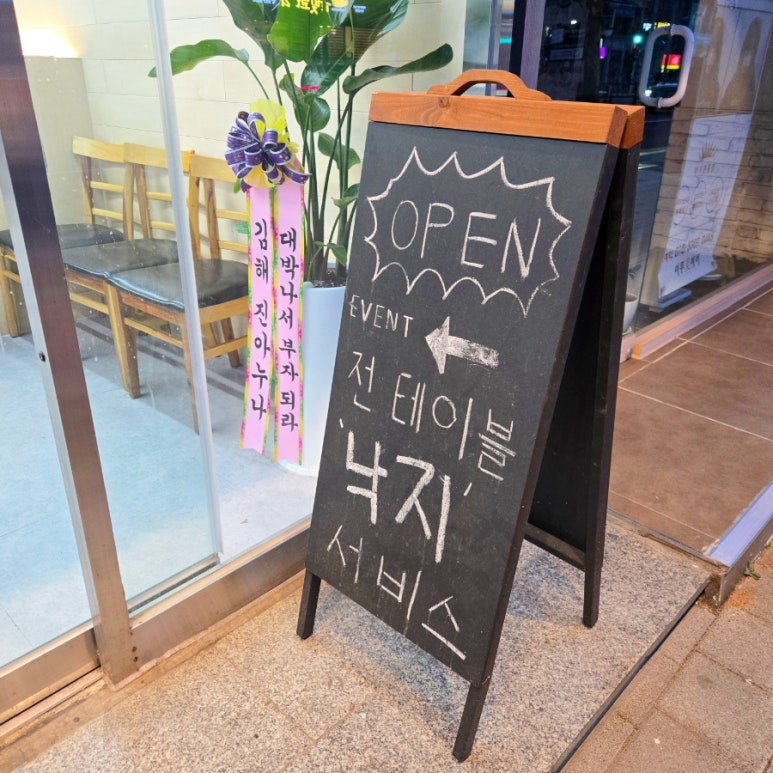 OPEN
EVENT
전 테이블
'낙지'
서비스
대박나서 부자 되라
김해 진아누나